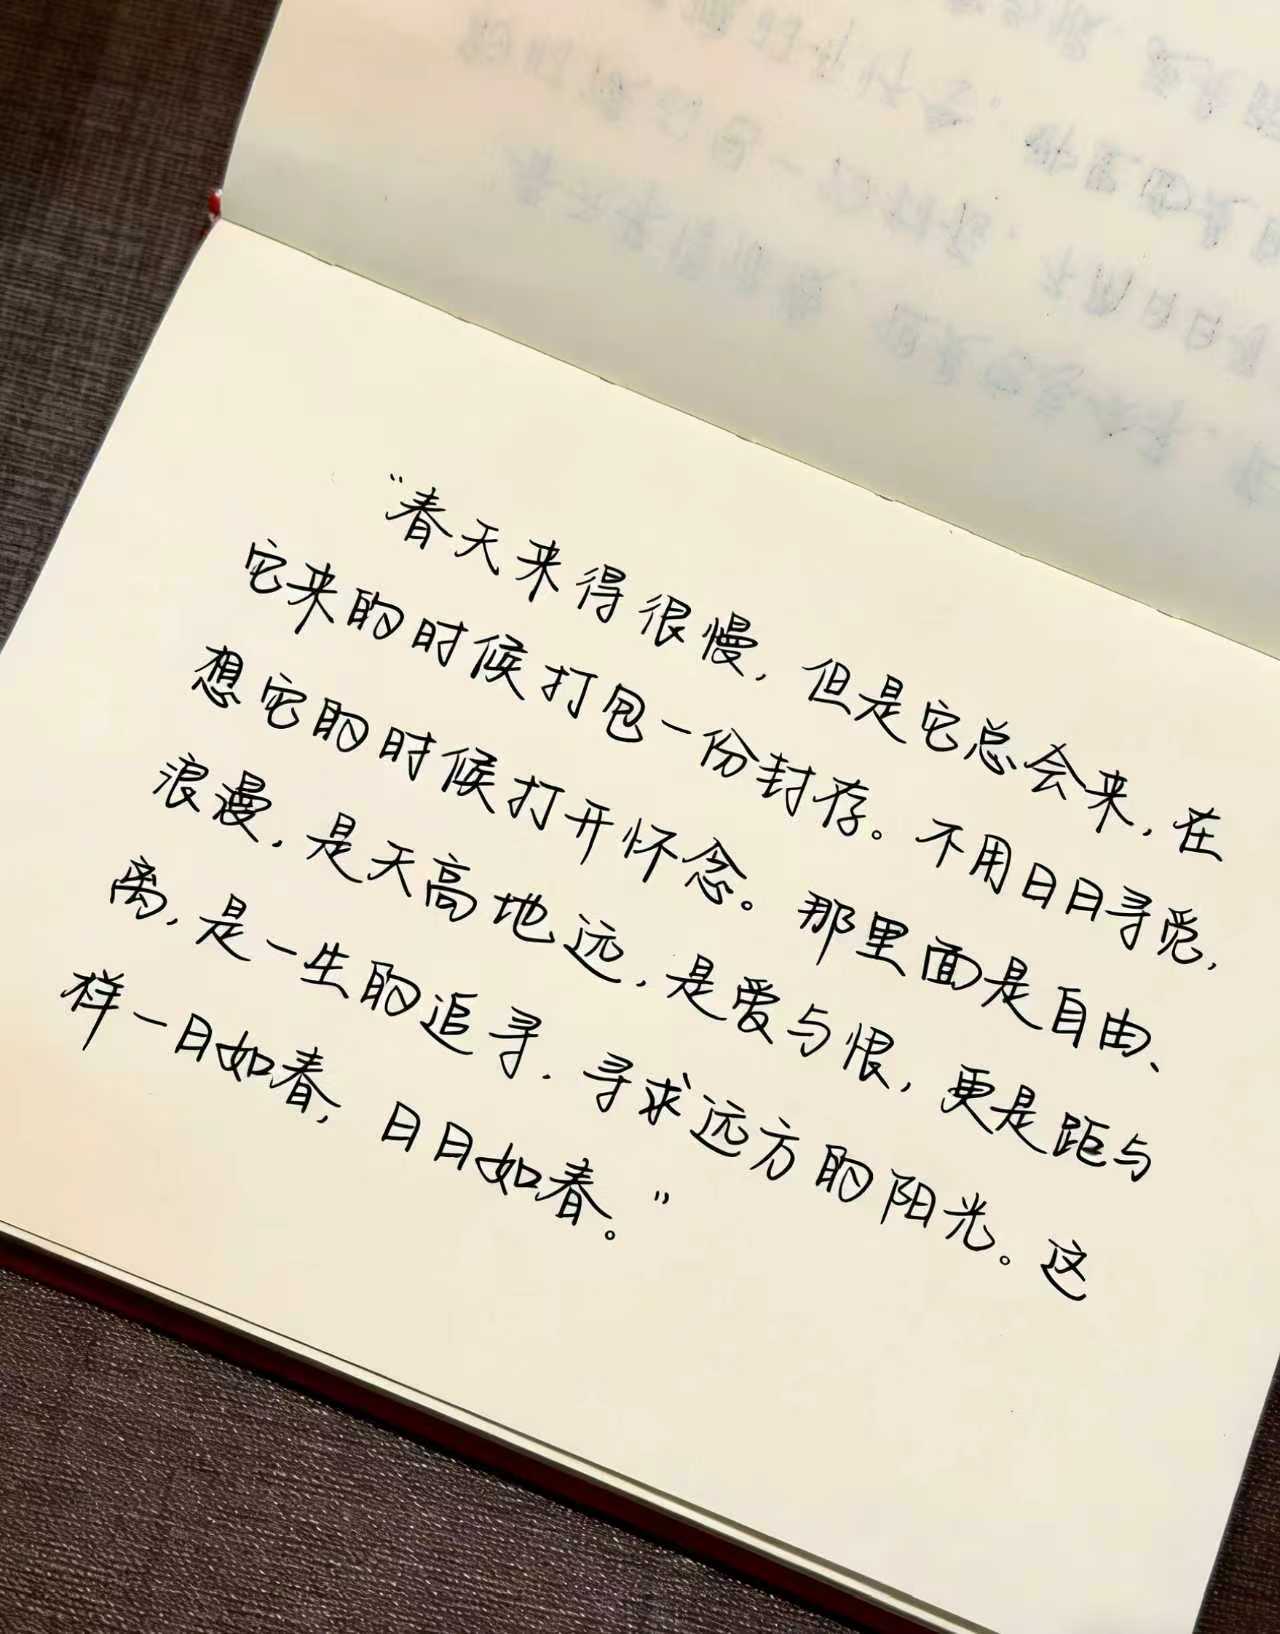 “春天来得很慢，但是它总会来，在
它来的时候打包一份封存。不用日日寻觅，
想它的时候打开怀念。那里面是自由、
浪漫，是天高地远，是爱与恨，更是距与
离，是一生的追寻．寻求远方的阳光。这
样一日如春，日日如春。”